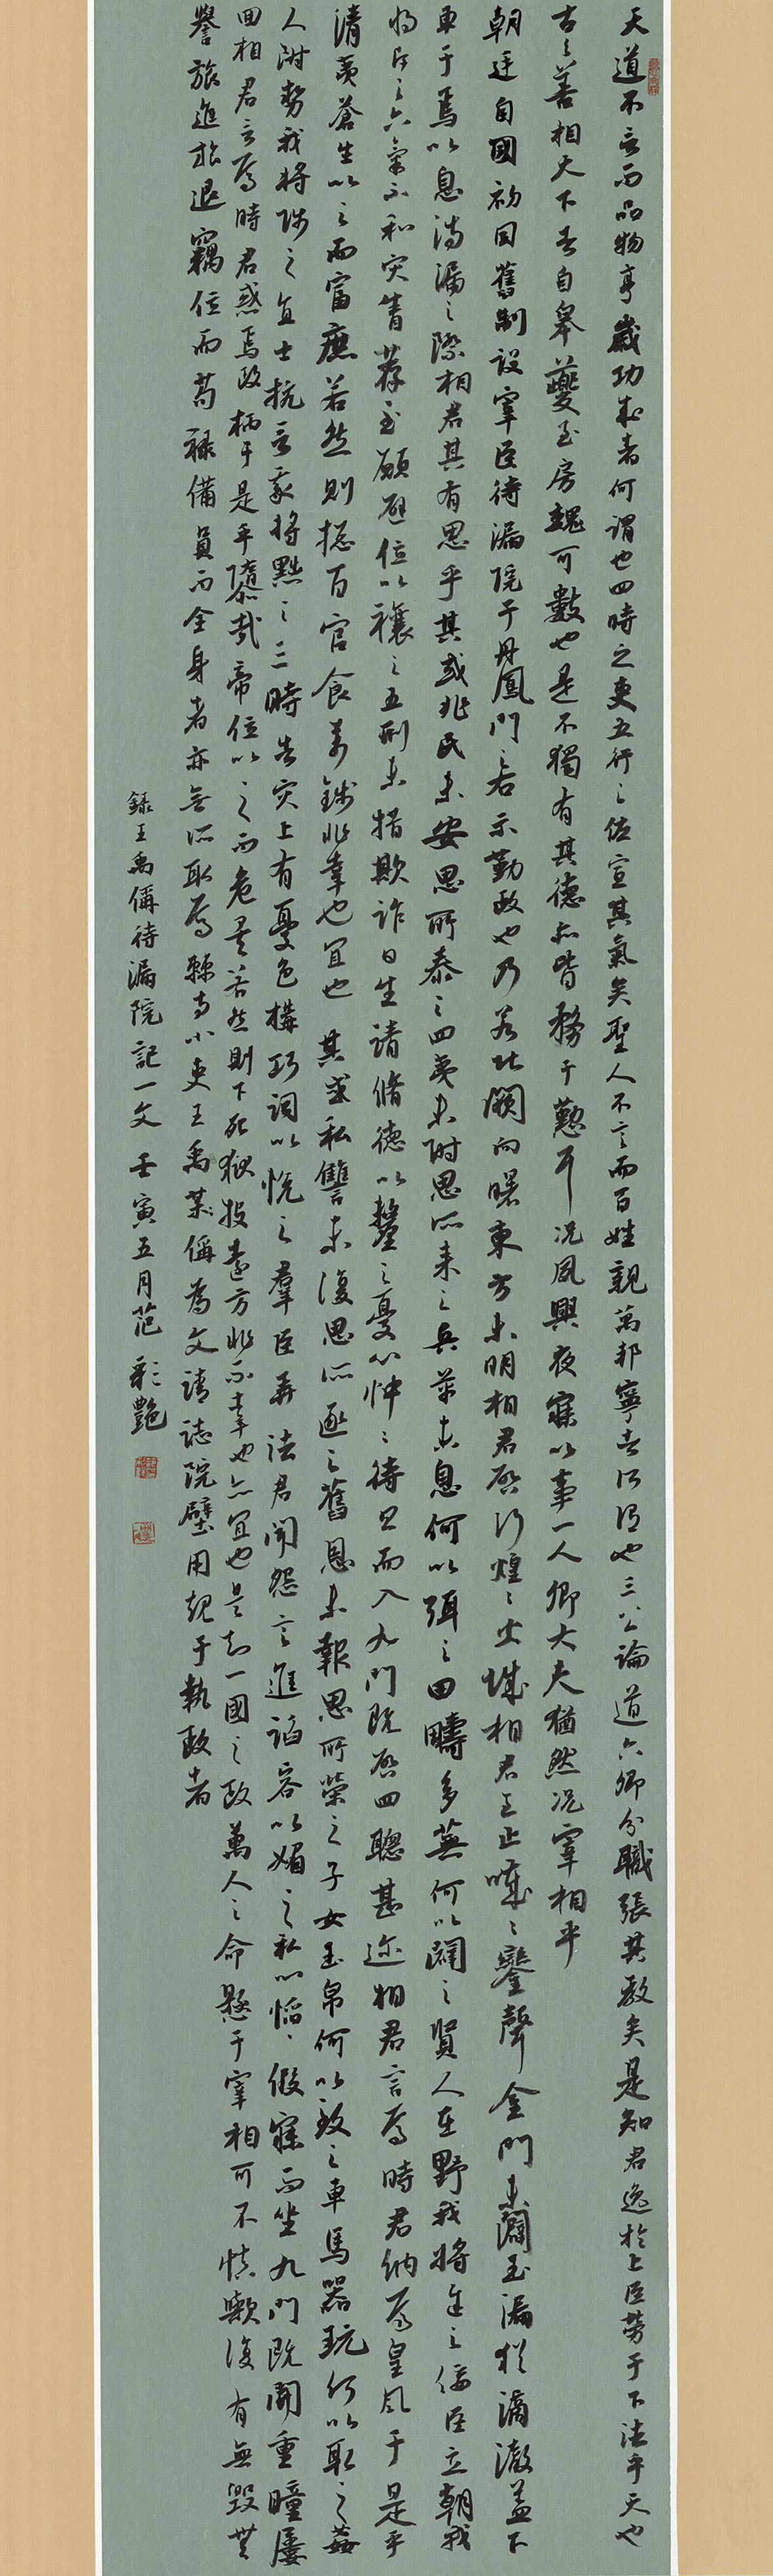 天道不言而品物亨歲功成者何謂也四時之吏五行之佐宣其氣矣聖人不言而百姓親萬邦寧者何謂也三公論道六卿分職張其教矣是知君逸於上臣勞于下法乎天也
古之善相天下者自皋夔至房魏可數也是不獨有其德亦皆務于勤耳況夙興夜寐以事一人卿大夫猶然況宰相乎
朝廷自國初因舊制設宰臣待漏院于丹鳳門之右示勤政也乃若北闕向曙東方未明相君啟行煌煌火城相君至止噦噦鑾聲金門未闢玉漏猶滴澈蓋下
車于焉以息待漏之際相君其有思乎其或兆民未安思所泰之四夷未附思所來之兵革未息何以弭之田疇多蕪何以闢之賢人在野我將進之佞臣立朝我
將斥之六氣不和災眚荐至願避位以禳之五刑未措欺詐日生請脩德以釐之憂心忡忡待旦而入九門既啟四聰甚邇相君言焉時君納焉皇風于是乎
清夷蒼生以之而富庶若然則總百官食萬錢非幸也宜也其或私讐未復思所逐之舊恩未報思所榮之子女玉帛何以致之車馬器玩何以取之姦
人附勢我將陟之直士抗言我將黜之三時告災上有憂色構巧詞以悅之羣臣弄法君聞怨言進諂容以媚之私心慆慆假寐而坐九門既開重瞳屢
回相君言焉時君惑焉政柄于是乎隳哉帝位以之而危矣若然則下死獄投遠方非不幸也亦宜也是知一國之政萬人之命懸于宰相可不慎歟復有無毀無
譽旅進旅退竊位而苟祿備員而全身者亦無所取焉棘寺小吏王禹偁為文請誌院壁用規于執政者
錄王禹偁待漏院記一文 壬寅五月范彩艷